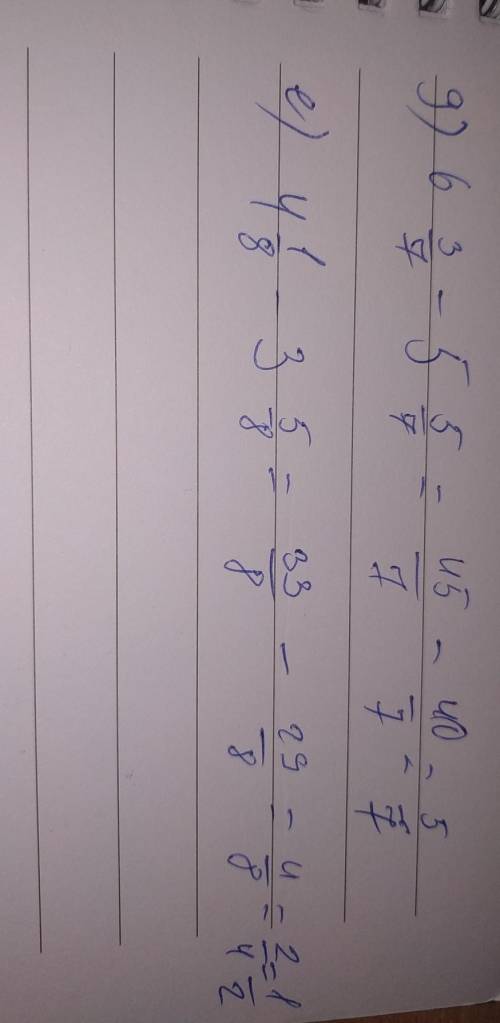 д) 6 3/7 - 5 5/7 = 45/7 - 40/7 = 5/7
е) 4 1/8 - 3 5/8 = 33/8 - 29/8 = 4/8 = 2/4 = 1/2